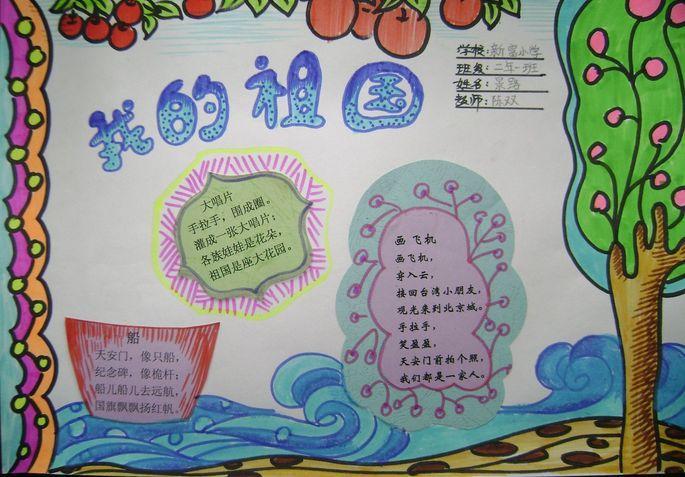 我的祖国
学校:新宫小学
班级:二年一班
姓名:景路
教师:陈双
大唱片
手拉手，围成圈。
灌成一张大唱片；
各族娃娃是花朵，
祖国是座大花园。
画飞机
画飞机，
穿入云，
接回台湾小朋友，
观光来到北京城。
手拉手，
笑盈盈，
天安门前拍个照，
我们都是一家人。
船
天安门，像只船，
纪念碑，像桅杆；
船儿船儿去远航，
国旗飘飘扬红帆。